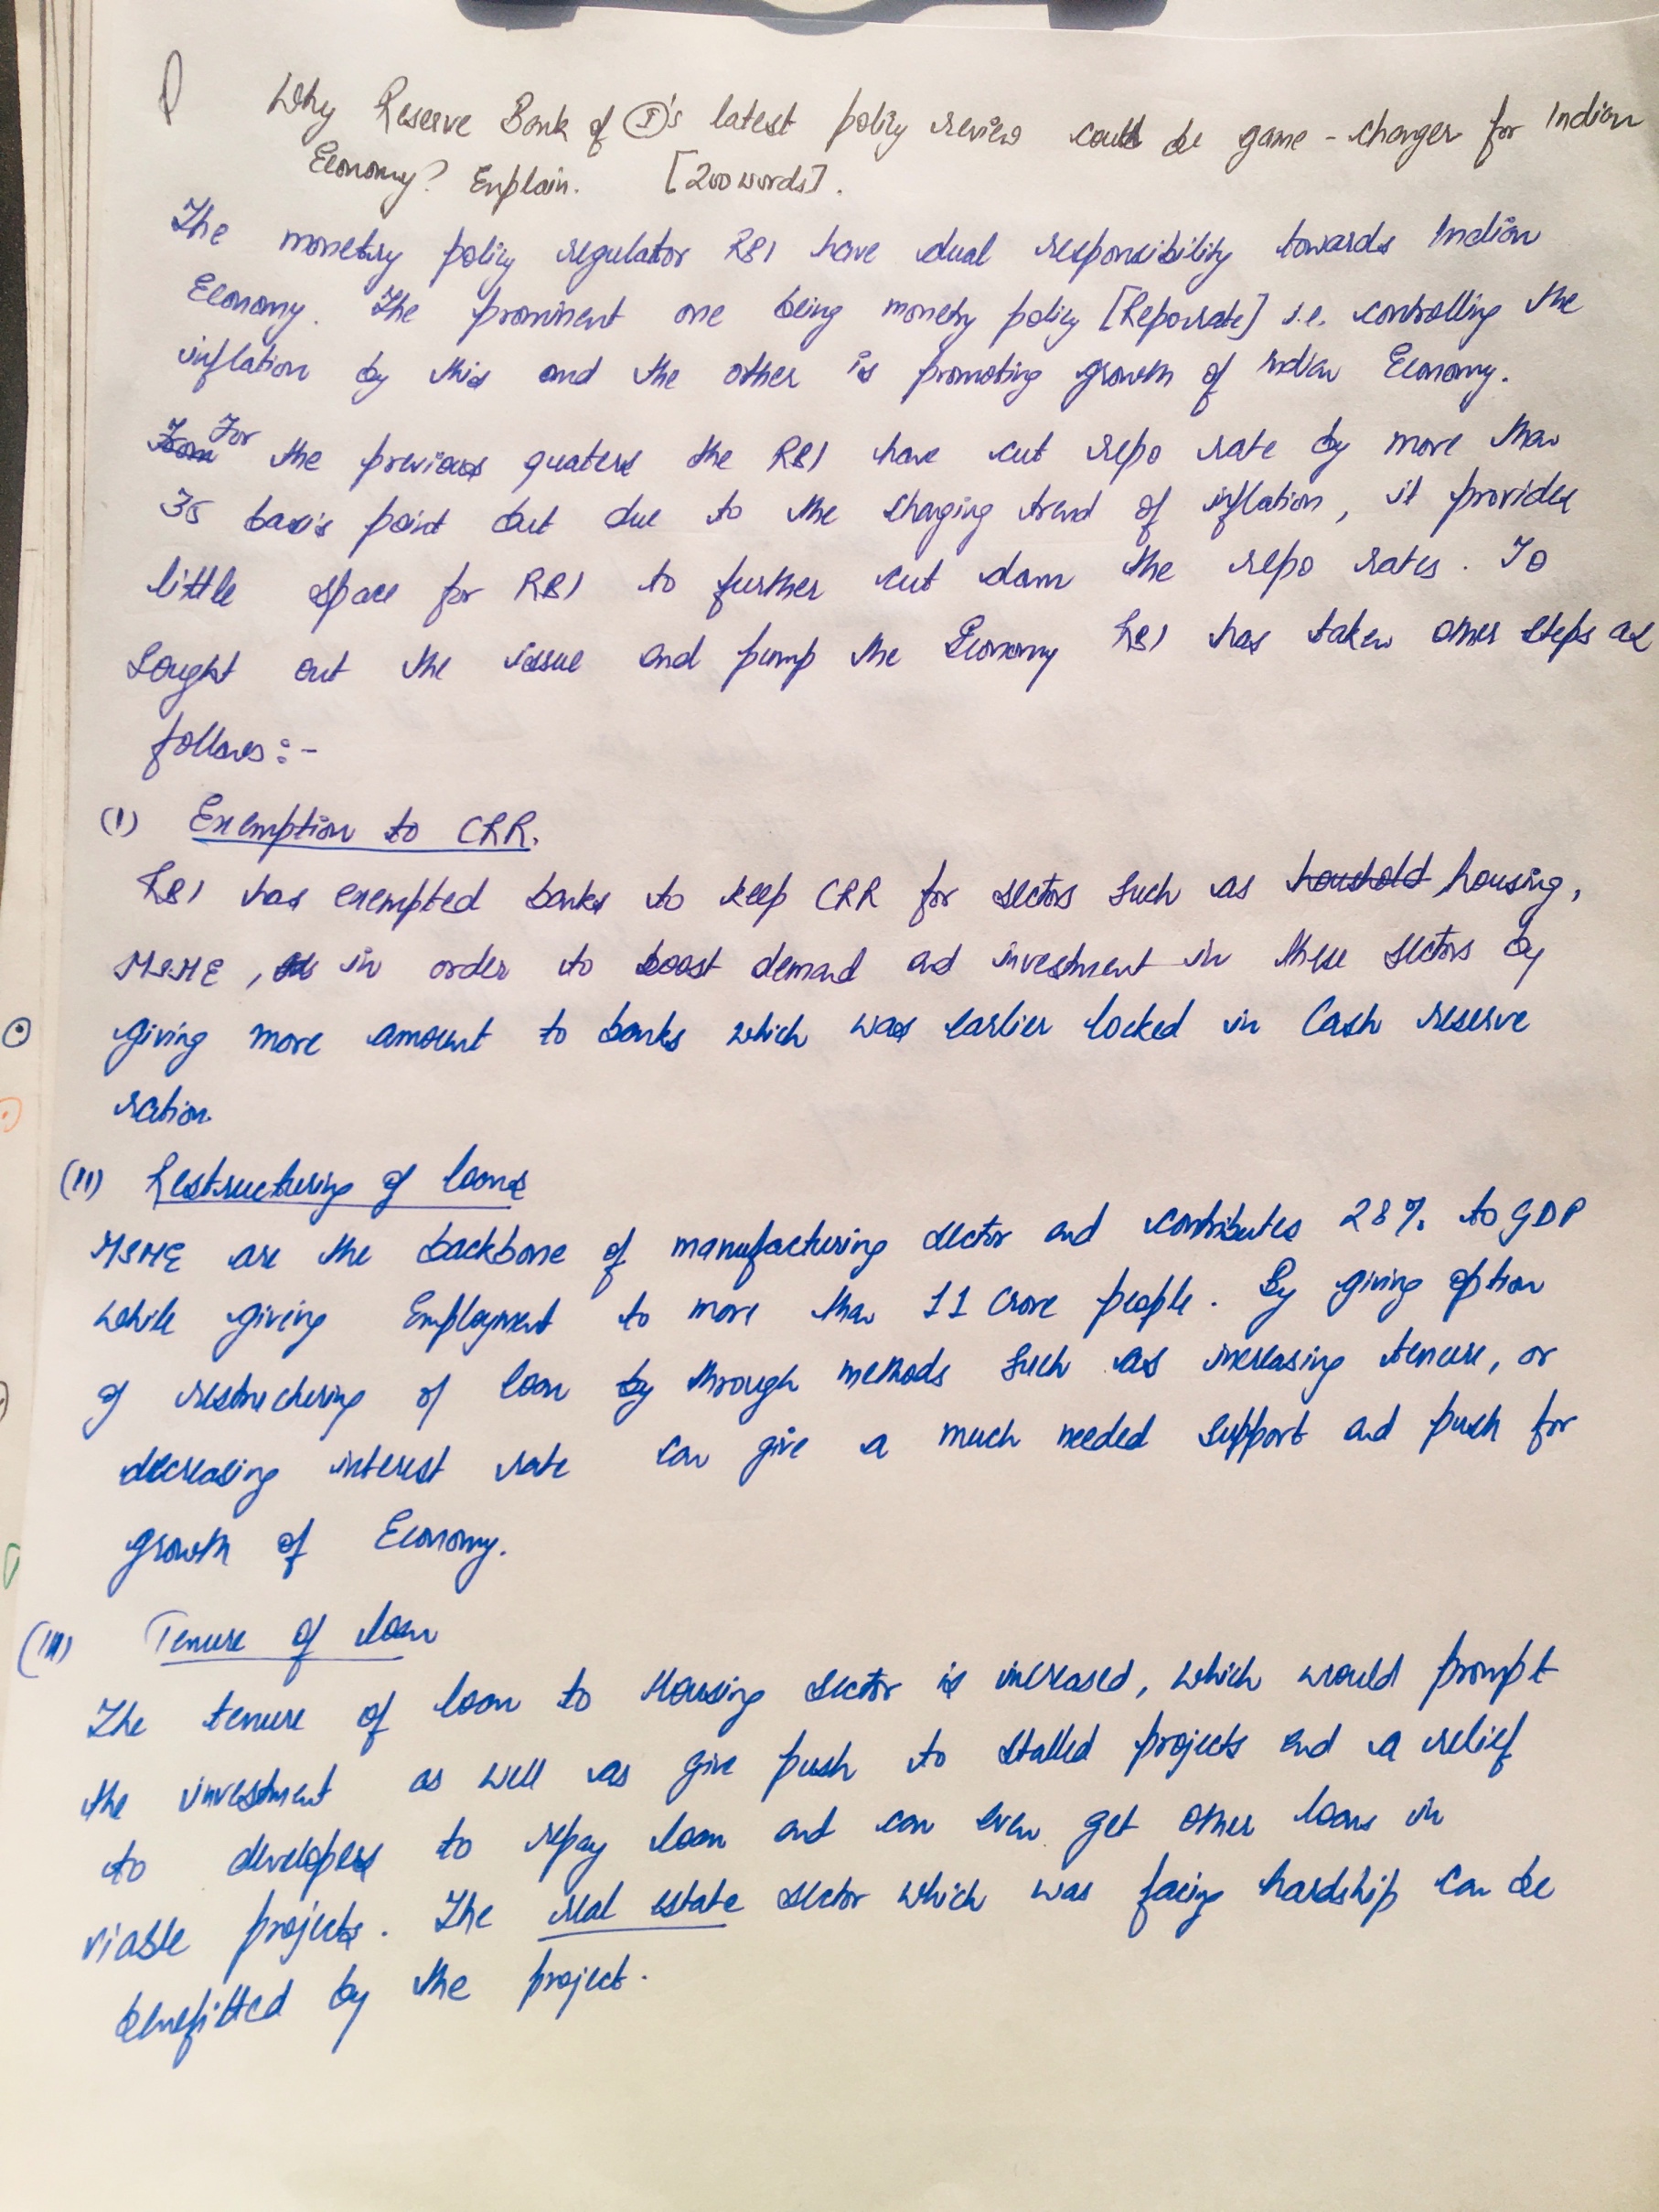 Q Why Reserve Bank of I's latest policy review could be game-changer for Indian
Economy? Explain. [200 words].
The monetry policy regulator RBI have dual responsibility towards Indian
Economy. The prominent one being monetry policy [Reporate] i.e. controlling the
inflation by this and the other is promoting growth of Indian Economy.
For the previous quaters the RBI have cut repo rate by more than
35 basis point but due to the changing trend of inflation, it provides
little space for RBI to further cut down the repo rates. To
sought out the issue and pump the Economy RBI has taken other steps as
follows:-
(I) Exemption to CRR.
RBI has exempted banks to keep CRR for sectors such as houshold housing,
MSME, in order to boost demand and investment in these sectors by
giving more amount to banks which was earlier locked in Cash reserve
ration.
(II) Restructuring of loans
MSME are the backbone of manufacturing sector and contributes 28% to GDP
while giving Employment to more than 11 crore people. By giving option
of restructuring of loan by through methods such as increasing tenure, or
decreasing interest rate can give a much needed support and push for
growth of Economy.
(III) Tenure of loan
The tenure of loan to Housing sector is increased, which would prompt
the investment as well as give push to stalled projects and a relief
to developers to repay loan and can even get other loans in
viable projects. The real estate sector which was facing hardship can be
benefitted by the project.